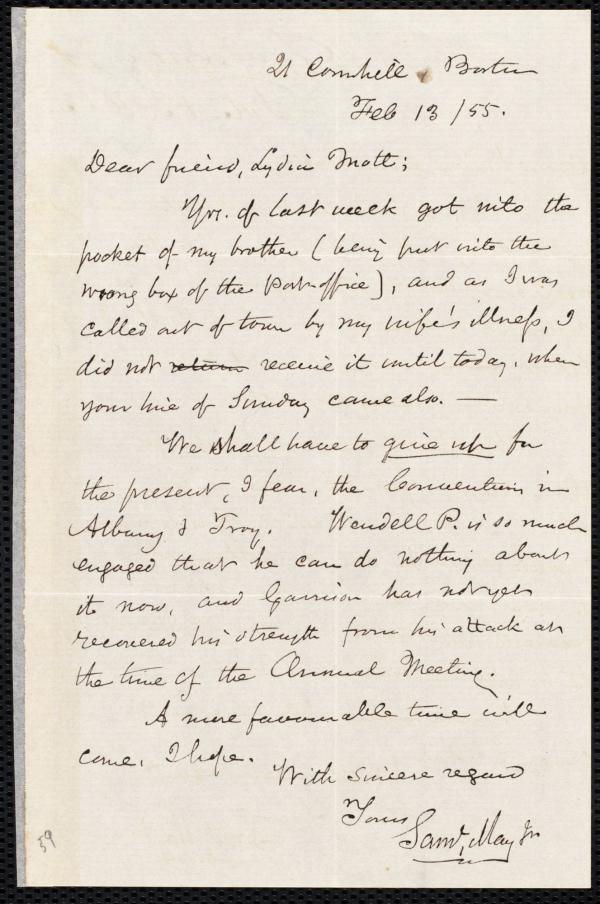 21 Cornhill, Boston
Feb 13 /55.
Dear friend, Lydia Mott;
Yrs. of last week got into the
pocket of my brother (being put into the
wrong box of the Post-office), and as I was
called out of town by my wife's illness, I
did not return receive it until today, when
your line of Sunday came also. —
We shall have to give up for
the present, I fear, the Conventions in
Albany & Troy. Wendell P. is so much
engaged that he can do nothing about
it now, and Garrison has not yet
recovered his strength from his attack at
the time of the Annual Meeting.
A more favourable time will
come, I hope.
With sincere regard
Yours
Saml. May Jr
59